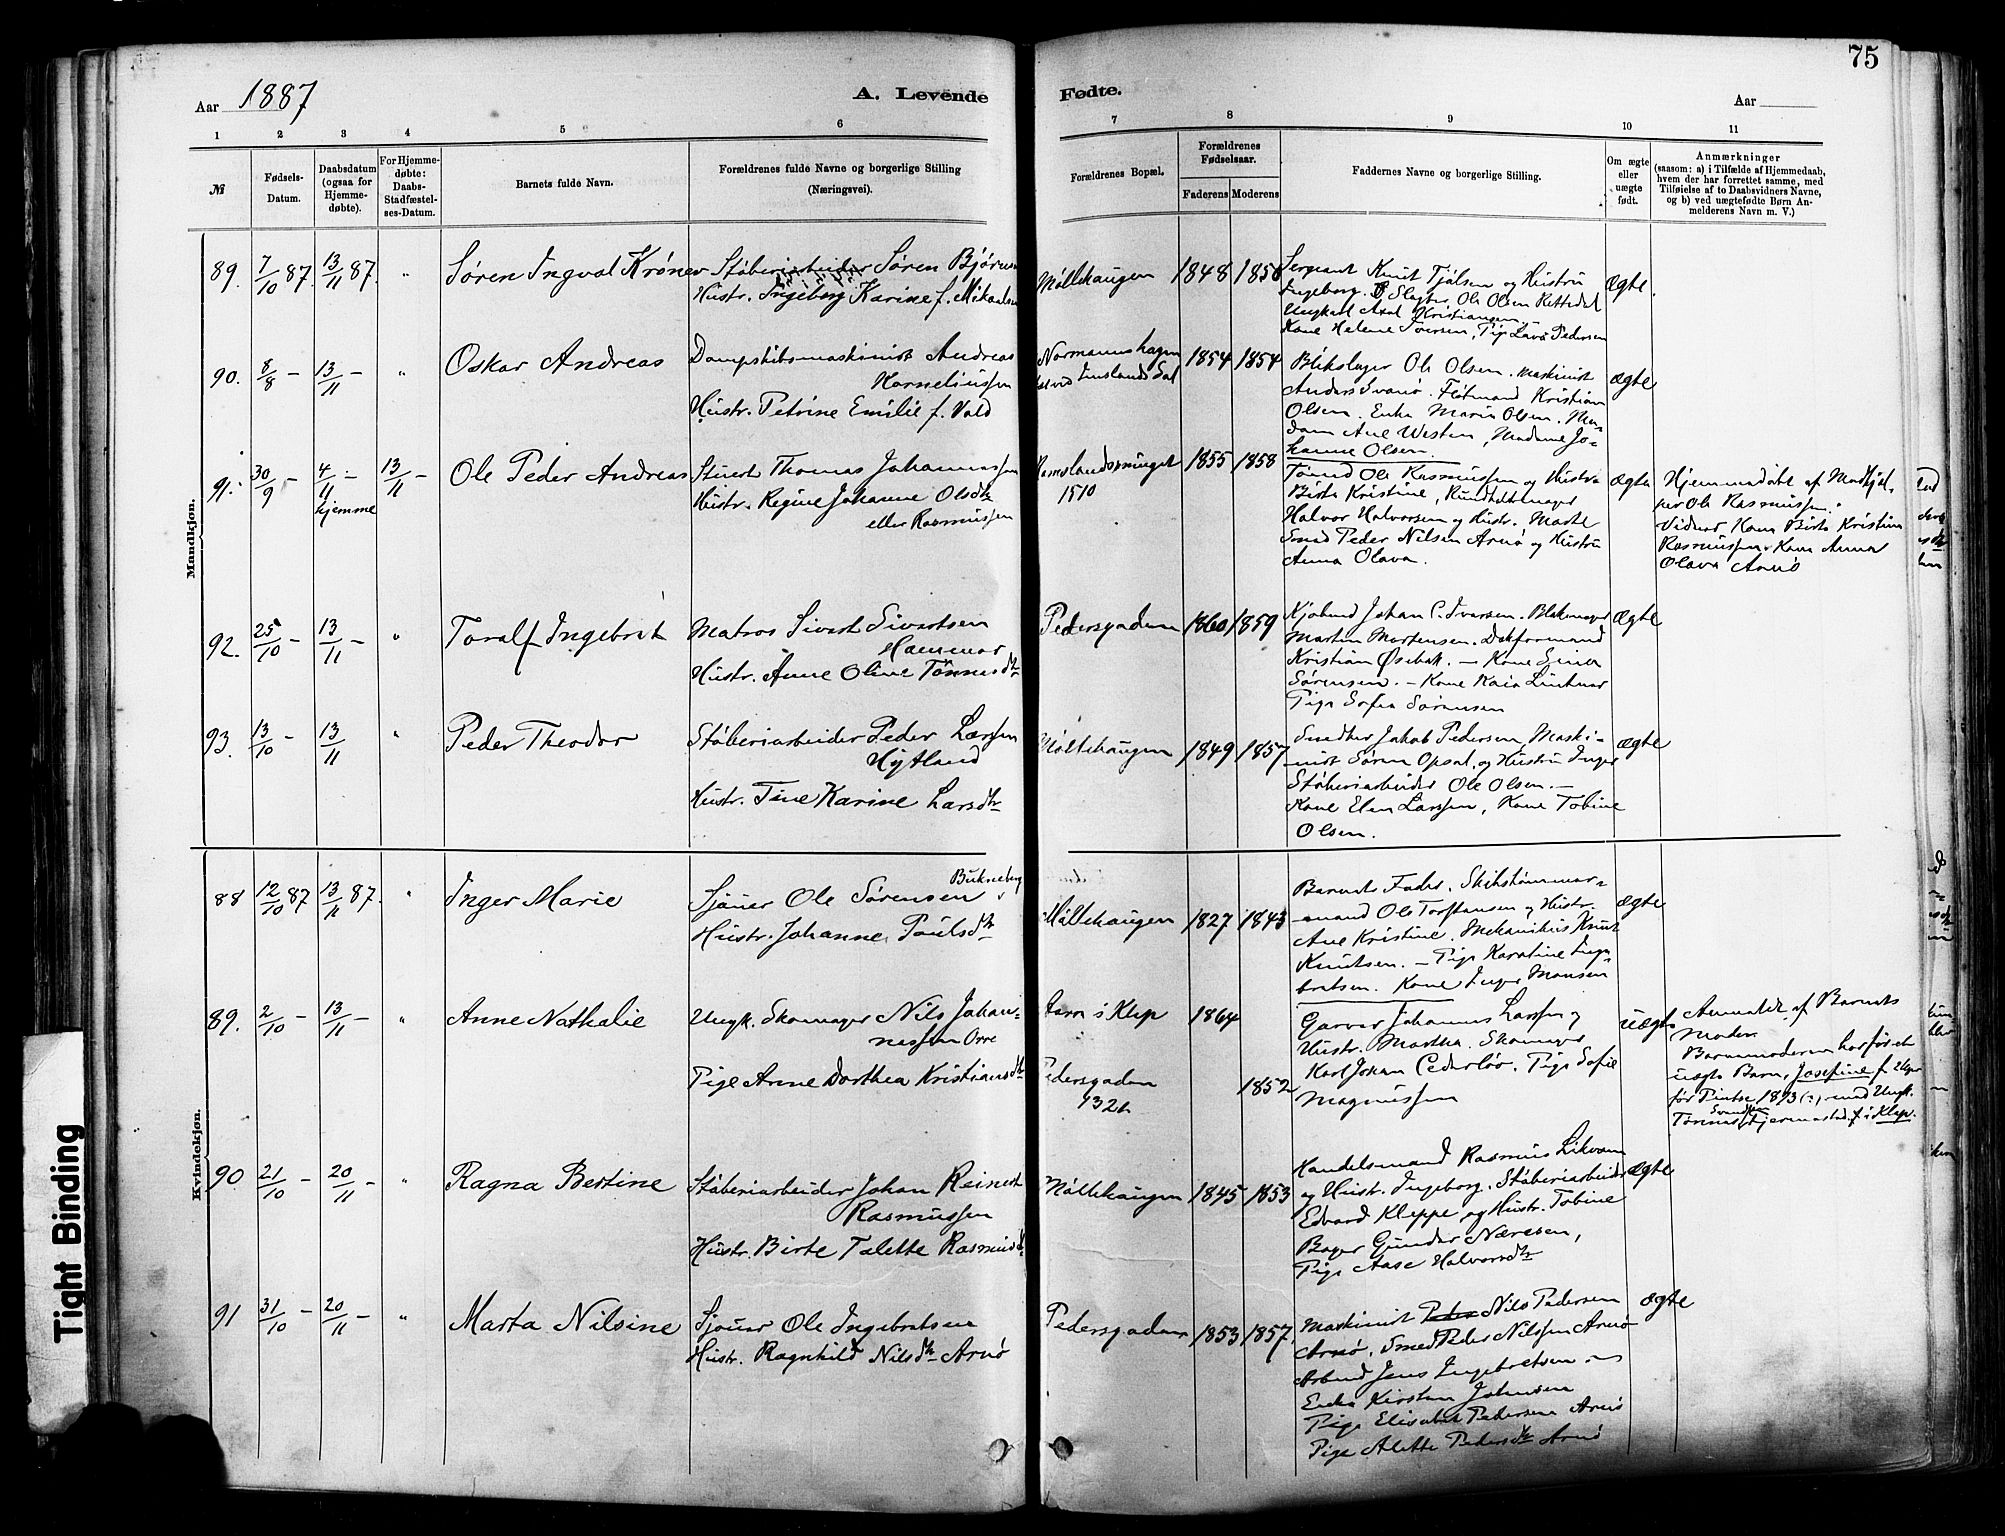 75
Aar 1887
A. Levende
Fødte.
Aar
1 2 3 4 5 6
7 8 9 10 11
№
Fødsels-
Datum.
Daabsdatum
(ogsaa for
Hjemme-
døbte).
For Hjemme-
døbte:
Daabs-
Stadfæstel-
ses-Datum.
Barnets fulde Navn.
Forældrenes fulde Navne og borgerlige Stilling
(Næringsvei).
Forældrenes Bopæl.
Forældrenes
Fødselsaar.
Faderens Moderens
Faddernes Navne og borgerlige Stilling.
Om ægte
eller
uægte
født.
Anmærkninger
(saasom: a) i Tilfælde af Hjemmedaab,
hvem der har forrettet samme, med
Tilføielse af to Daabsvidners Navne,
og b) ved uægtefødte Børn An-
melderens Navn m. V.)
Mandkjøn.
89. 7/10 87. 13/11 87. " Søren Ingval Krøne
Støberiarbeider Søren
Hustr. Ingeborg Karine f. Mikaels
Møllehaugen 1848 1850
Sergeant Knut Tjålsen og Hustru
Ingeborg. Slagter Ole Olsen
Ungkarl Axel Kristiansen
Kone Helene Pige Pedersen
ægte
90. 8/8 – 13/11 – " Oskar Andreas
Dampskibsmaskinist Andreas
Korneliussen
Hustr. Petrine Emilie f. Vold
1854 1854
Blikslager Ole Olsen. Maskinist
Anders Svanø. Kristian
Olsen. Enke Maria Olsen. Ma-
dam Ane Westen, Madame Jo-
hanne Olsen.
ægte
91. 30/9 – 4/11 – hjemme 13/11 – Ole Peder Andreas
Stuert Thomas Johannessen
Hustr. Regine Johanne Olsdtr
eller Rasmussen
1510
1855 1858
Ole Rasmussen og Hustru
Birte Kristine,
Halvor Halvorsen og Hustr. Marte
Smed Peder Nilsen Arnø og Hustru
Anna Olava.
ægte
Hjemmedøbt af
Ole Rasmussen.
Vidner Kone Birte Kristine
Rasmussen, Kone Anna
Olava Arnø
92. 25/10 – 13/11 – " Toralf Ingebret
Matros Sivert Sivertsen
Hammer
Hustr. Anne Oline Tønnesdtr
Pedersgaden 1860 1859
Johan C. Iversen.
Martin Mortensen.
Kristian – Kone Sina
Sørensen. – Kone Kaia
Pige Sofia Sørensen
ægte
93. 13/10 – 13/11 " Peder Theodor
Støberiarbeider Peder Larsen
Hytland
Hustr. Tine Karine Larsdtr
Møllehaugen 1849 1857
Jakob Pedersen, Maski-
nist Søren Opsal, og Hustru Inger
Støberiarbeider Ole Olsen. –
Kone Elen Larssen, Kone Tobine
Olsen.
ægte
Kvindekjøn.
88 12/10 87 13/11 87. " Inger Marie
Sjouer Ole Sørensen
Hustr. Johanne Paulsdtr
Møllehaugen 1827 1843
Barnets Fader. Skibstømmer-
mand Ole Torstensen og Hustr.
Ane Kristine. Mekanikus Knut
Knutsen. – Pige Karatine Inge-
bretsen. Kone Inger Monsen
ægte
89. 2/10 – 13/11 – " Anne Nathalie
Ungk. Skomager Nils Johan-
nessen Orre
Pige Anne Dorthea Kristiansdtr
i Klep 1864
Pedersgaden
132b
1852
Garver Johannes Larssen og
Hustr. Martha. Skomager
Karl Johan Pige Sofie
Magnussen
uægte
Anmeldt af Barnets
Moder.
Barnemoderen har før et
uægte Barn, Josefine
før Pintse 1873 (?) med Ungk.
Tønnes Svendsen i Klep.
90 21/10 – 20/11 – " Ragna Bertine
Støberiarbeider Johan Reinert
Rasmussen
Hustr. Birte Talette Rasmusdtr
Møllehaugen 1845 1853
Handelsmand Rasmus
og Hustr. Ingeborg. Støberiarbeider
Edvard Kleppe og Hustr. Tobine
Bager Gunder Næresen,
Pige Aase Halvorsdtr
ægte
91 31/10 – 20/11 – " Marta Nilsine
Sjouer Ole Ingebretsen
Hustr. Ragnhild Nilsdtr Arnø
Pedersgaden 1853 1857
Maskinist Nils Pedersen
Arnø, Smed Peder Nilssen Arnø
Arbeid Jens Ingebretsen
Enke Kirsten Johnsen
Pige Elisabet Pedersen Arnø
Pige Alette Pedersdtr Arnø
ægte
Tight Binding